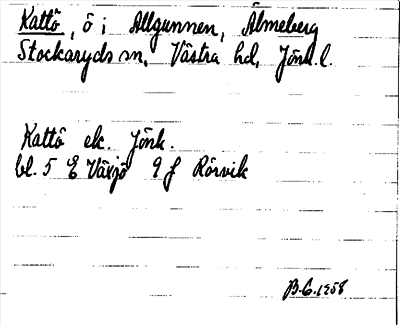 Kattö, ö i Allgunnen, Älmeberg
Stockaryds sn, Västra hd, Jönk. l.
Kattö ek. Jönk.
bl. 5 E Växjö 9 f Rörvik
B.G. 1958